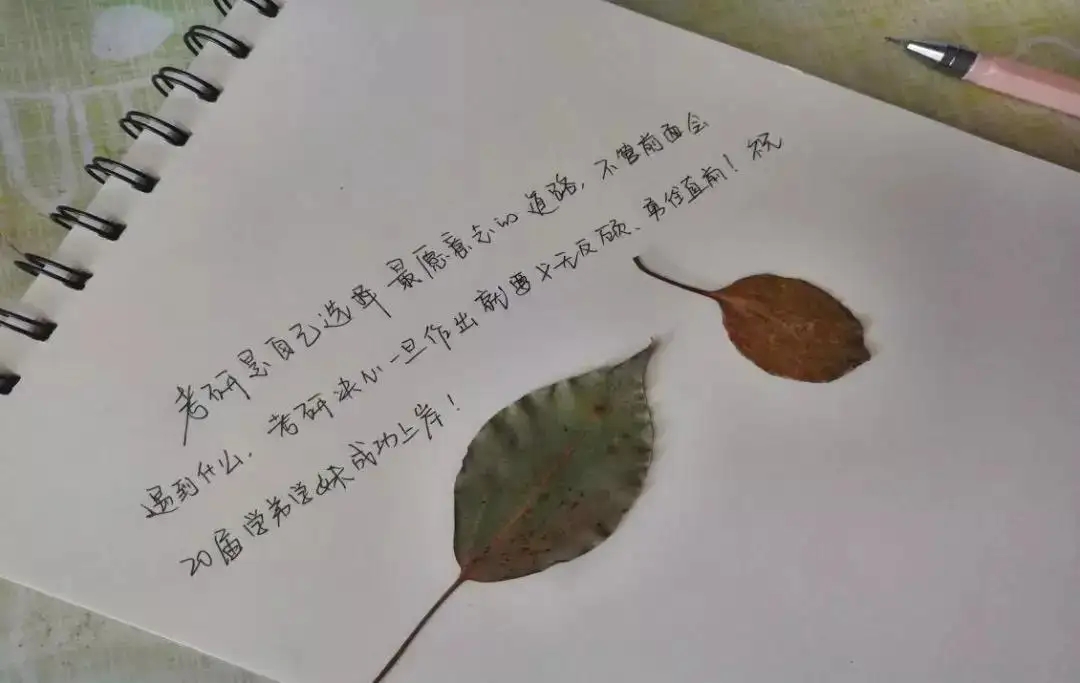 考研是自己选择最愿意去的道路，不管前面会
遇到什么，考研决心一旦作出就要义无反顾、勇往直前！祝
20届学弟学妹成功上岸！